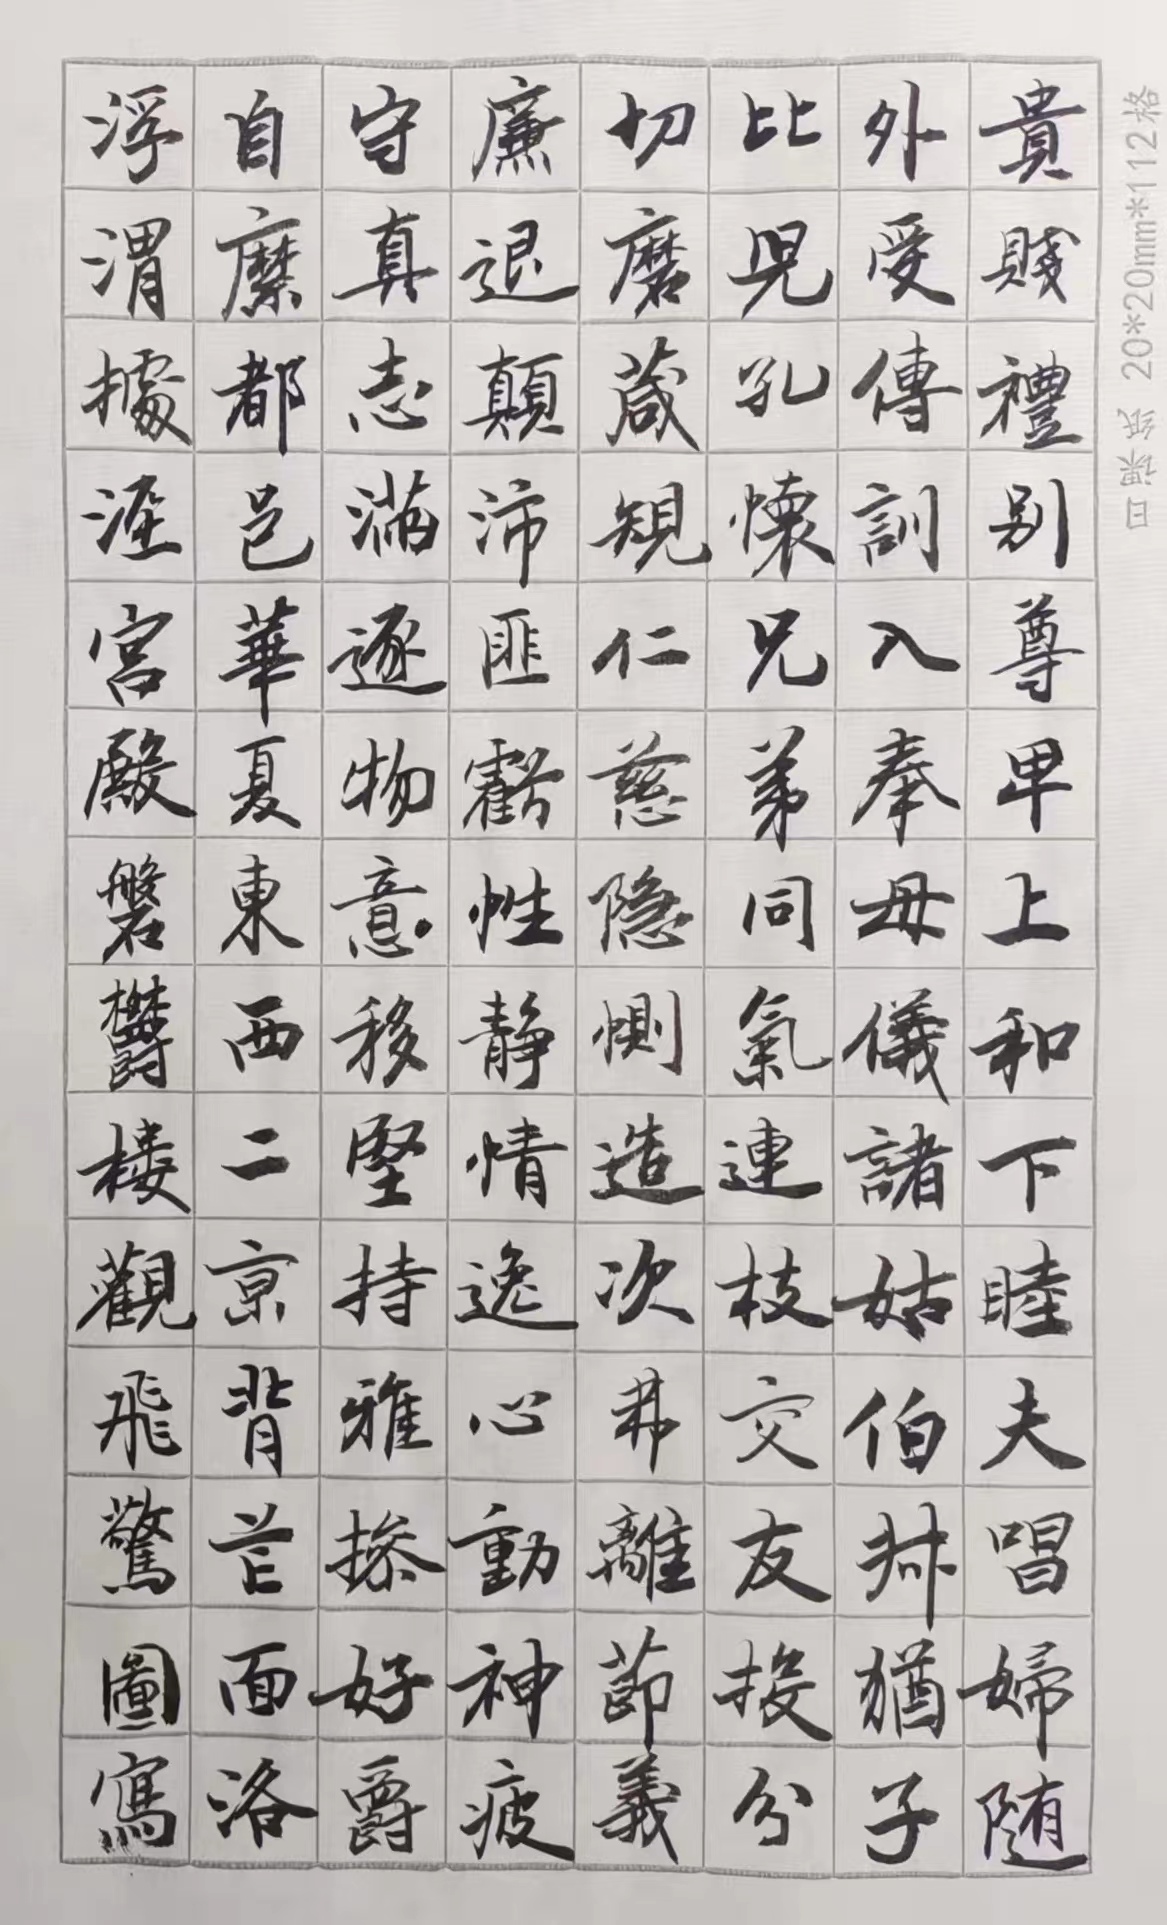 貴賤禮别尊卑上和下睦夫唱婦随
外受傳訓入奉母儀諸姑伯叔猶子
比兒孔懷兄弟同氣連枝交友投分
切磨箴規仁慈隐惻造次弗離節義
廉退顛沛匪虧性静情逸心動神疲
守真志滿逐物意移堅持雅操好爵
自縻都邑華夏東西二京背芒面洛
浮渭據涇宫殿磐鬱楼觀飛驚圖寫
日课纸 20*20mm*112格